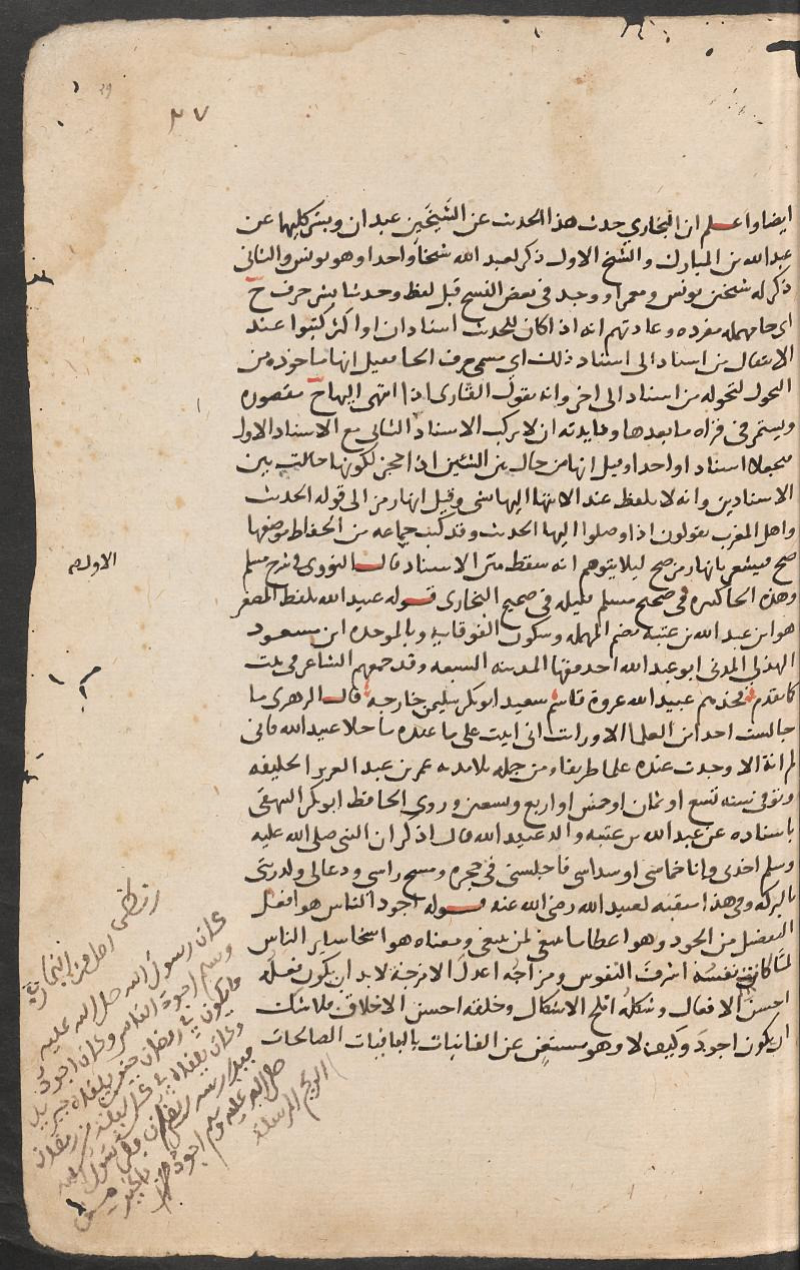 ٣٧
39
ايضا واعلم ان البخاري حدث هذا الحدث عن الشيخين عبدان وبشر كليهما عن
عبد الله بن المبارك والشيخ الاول ذكر لعبد الله شيخا واحدا وهو يونس والثانى
ذكر له شيخين يونس ومعمرا ووجد فى بعض النسخ قبل لفظ وحدثنا بشر حرف ح
اى حا مهمله مفرده وعادتهم انه اذا كان للحدث اسنادان او اكثر كتبوا عند
الانتقال من اسناد الى اسناد ذلك اي مسمى حرف الحا فقيل انها ماخوذه من
التحول لتحوله من اسناد الى اخر وانه يقول القارى اذا انتهى اليها ح مقصوره
ويستمر فى قراه ما بعدها وفايدته ان لا يركب الاسناد الثانى مع الاسناد الاول
فيجعلا اسنادا واحدا وقيل انها من حال بين الشيئين اذا حجز لكونها حالت بين
الاسنادين وانه لا يلفظ عند الانتها اليها بشى وقيل انها رمز الى قوله الحدث
واهل المغرب يقولون اذا وصلوا اليها الحدث وقد كتب جماعه من الحفاظ موضعها
صح فيشعر بانها رمز صح ليلا يتوهم انه سقط متن الاسناد قال النووى فى شرح مسلم
وهذه الحا كثيره فى صحيح مسلم قليله فى صحيح البخارى قوله عبيد الله بلفظ المصغر
هو ابن عبد الله بن عتبه بضم المهمله وسكون الفوقانيه وبالموحده ابن مسعود
الهذلي المدنى ابو عبد الله احد فقها المدينه السبعه وقد جمعهم الشاعر فى بيت
كما تقدم فخذهم عبيد الله عروة قاسم سعيد ابو بكر سليمن خارجه قال الزهرى ما
جالست احدا من العلما الا ورايت انى اتيت على ما عنده ما خلا عبيد الله فانى
لم اته الا وجدت عنده علما طريفا ومن جمله تلامذته عمر بن عبد العزيز الخليفه
وتوفى سنه تسع او ثمان او خمس او اربع وتسعين وروى الحافظ ابو بكر البيهقى
باسناده عن عبد الله بن عتبه والد عبيد الله قال اذكر ان النبى صلى الله عليه
وسلم اخذى وانا خماسى او سداسى فاجلسنى فى حجره ومسح راسي ودعا لى ولذريتى
بالبركه وفى هذا منقبه لعبيد الله رضى الله عنه قوله اجود الناس هو افعل
التفضيل من الجود وهو اعطا ما ينبغى لمن ينبغى ومعناه هو اسخا ساير الناس
لما كانت نفسه اشرف النفوس ومزاجه اعدل الامزجة لا بد ان يكون فعله
احسن الافعال وشكله املح الاشكال وخلقه احسن الاخلاق فلا شك
ان يكون اجود وكيف لا وهو مستغن عن الفانيات بالباقيات الصالحات
الاول صح
كان رسول الله صلى الله عليه
وسلم اجود الناس وكان اجود
ما يكون فى رمضان
صلى الله عليه وسلم اجود
الريح المرسلة